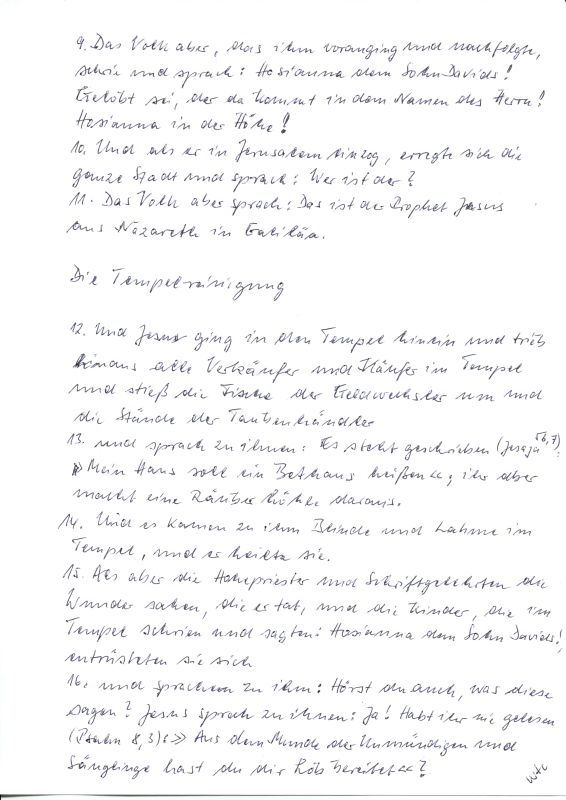 9. Das Volk aber, das ihm voranging und nachfolgte,
schrie und sprach: Hosianna dem Sohn Davids!
Gelobt sei, der da kommt in dem Namen des Herrn!
Hosianna in der Höhe!
10. Und als er in Jerusalem einzog, erregte sich die
ganze Stadt und sprach: Wer ist der?
11. Das Volk aber sprach: Das ist der Prophet Jesus
aus Nazareth in Galiläa.
Die Tempelreinigung
12. Und Jesus ging in den Tempel hinein und trieb
hinaus alle Verkäufer und Käufer im Tempel
und stieß die Tische der Geldwechsler um und
die Stände der Taubenhändler
13. und sprach zu ihnen: Es steht geschrieben (Jesaja 56,7):
»Mein Haus soll ein Bethaus heißen«; ihr aber
macht eine Räuberhöhle daraus.
14. Und es kamen zu ihm Blinde und Lahme im
Tempel, und er heilte sie.
15. Als aber die Hohepriester und Schriftgelehrten die
Wunder sahen, die er tat, und die Kinder, die im
Tempel schrien und sagten: Hosianna dem Sohn Davids!,
entrüsteten sie sich
16. und sprachen zu ihm: Hörst du auch, was diese
sagen? Jesus sprach zu ihnen: Ja! Habt ihr nie gelesen
(Psalm 8,3): » Aus dem Munde der Unmündigen und
Säuglinge hast du dir Lob bereitet«?